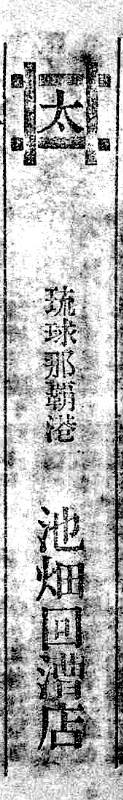 太
琉球那覇港
池畑回漕店